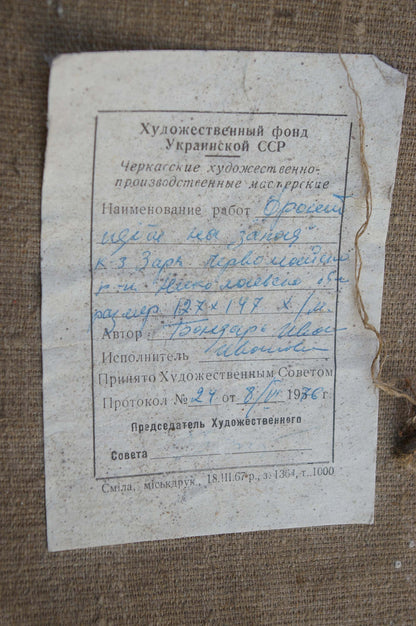 Художественный фонд
Украинской ССР
Черкасские художественно-
производственные мастерские
Наименование работ
на запад
к-з Заря
р-н
размер 127 х 197 х/м.
Автор Бондарь Иван
Исполнитель Иванович
Принято Художественным Советом
Протокол № 24 от 8/ 1976 г.
Председатель Художественного
Совета
Сміла, міськдрук., 18.III.67 р., з. 1364, т. 1000